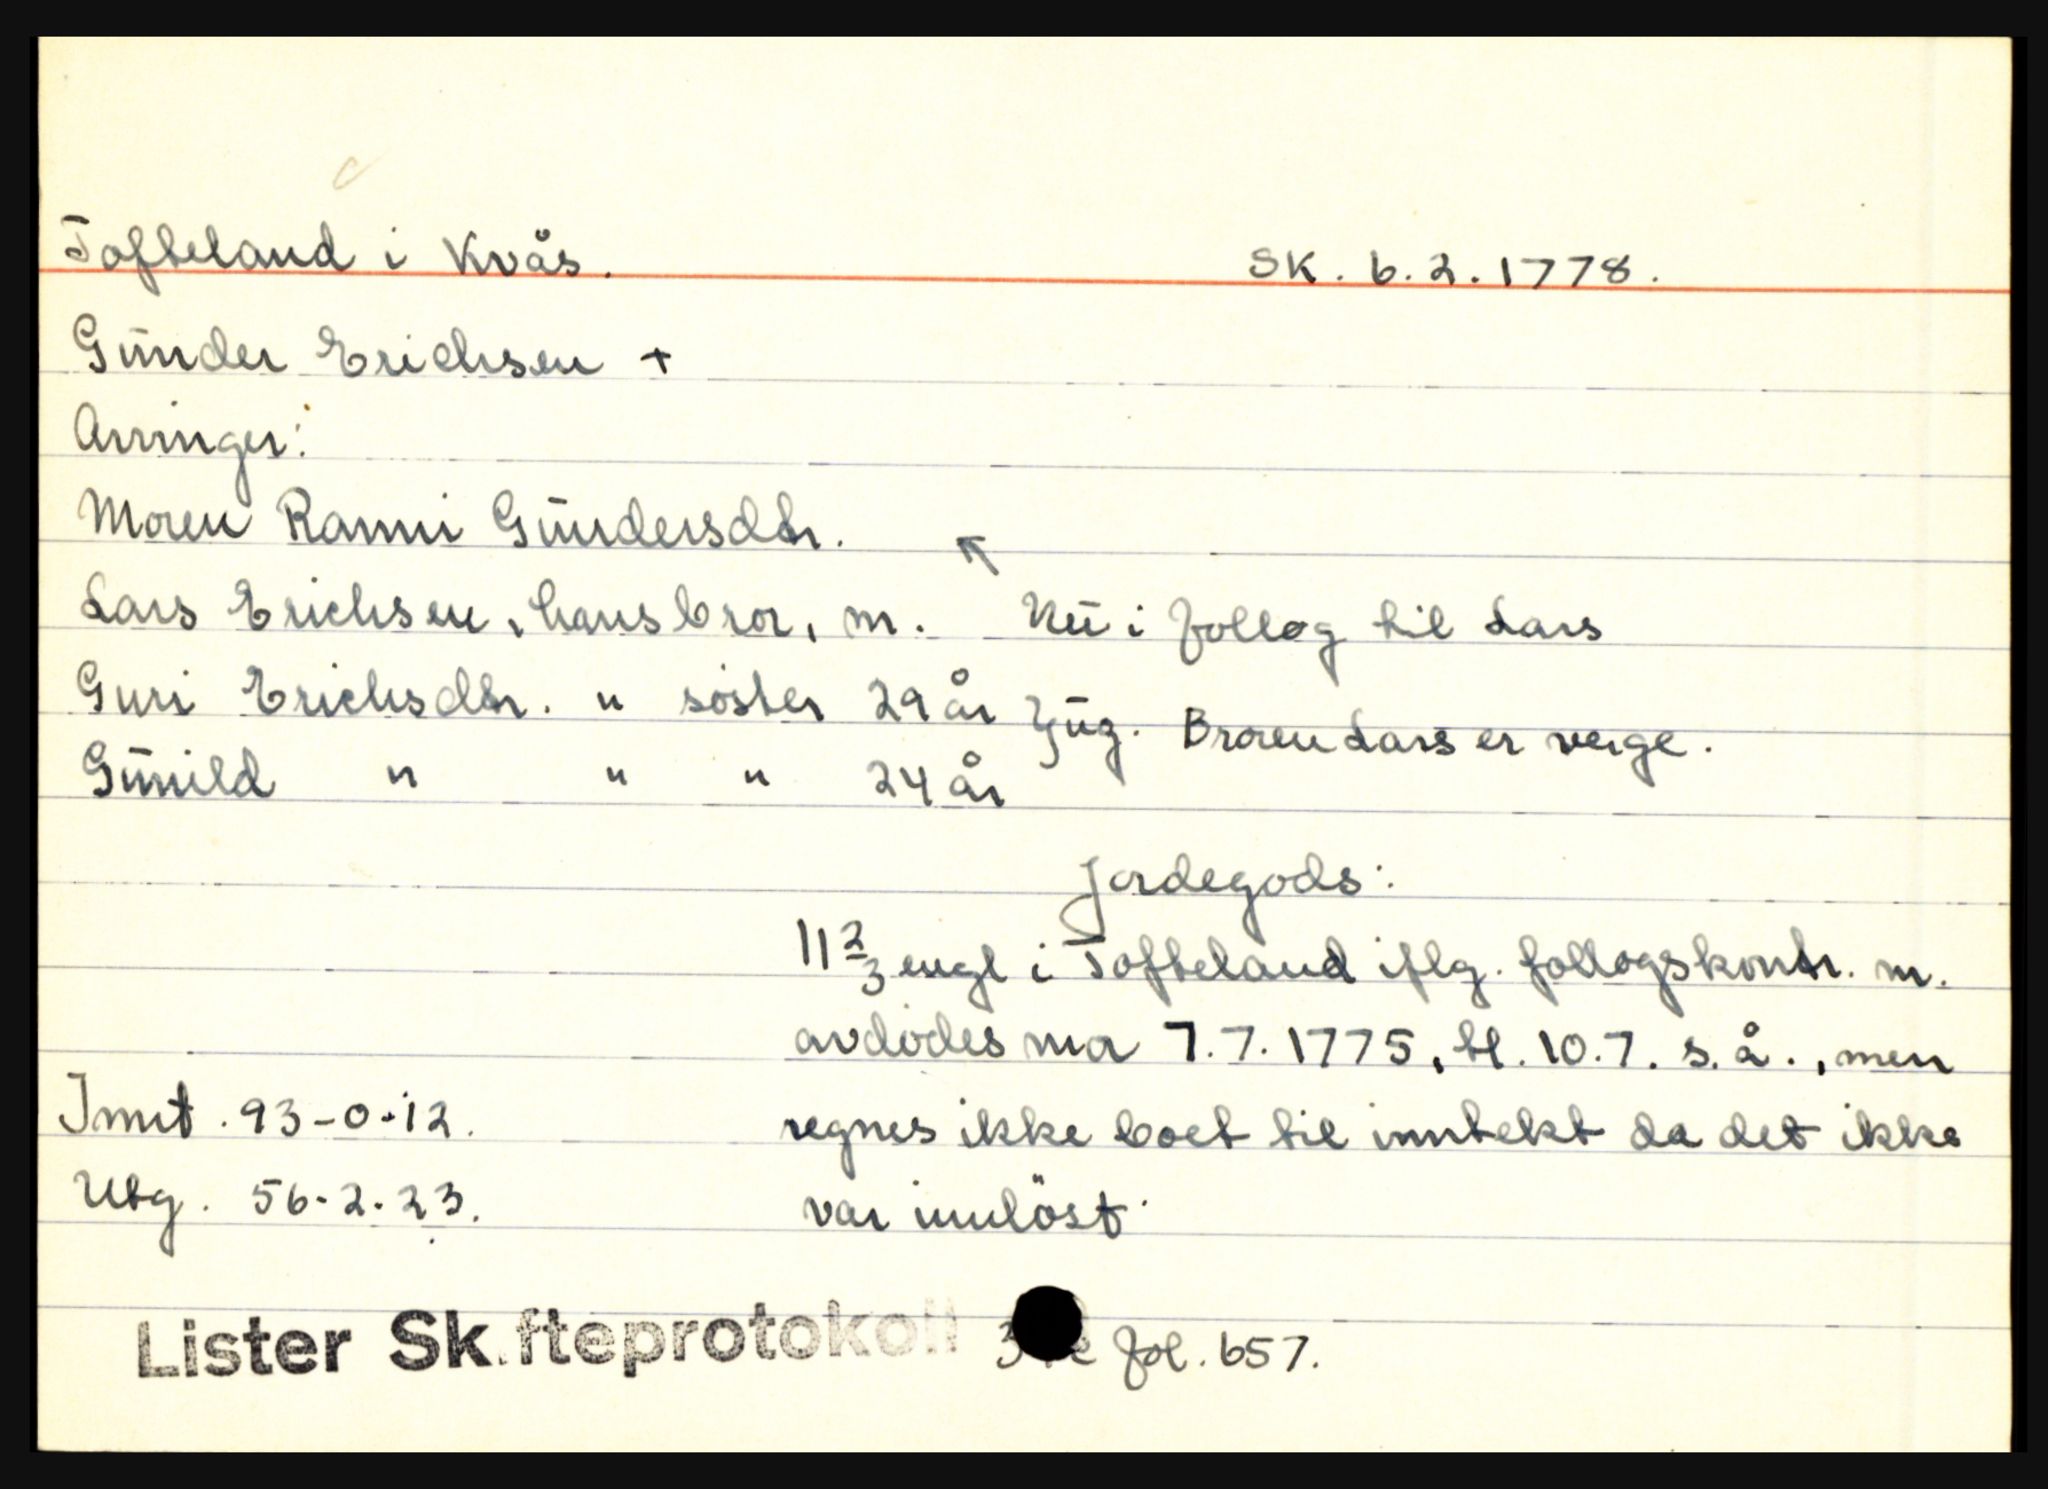 Tofteland i Kvås. SK. 6.2.1778.
Gūnder Erichsen +
Arvinger:
Moren Ranni Gūndersdtr.
Lars Erichsen, hans bror, m. Nū i follog til Lars
Guri Erichsdtr. " söster 29 år
Gūnild " " " 24 år
Ūg. Broren Lars er verge.
Jordegods:
11 2/3 engl i Tofteland iflg. follogskontr. m.
avdödes mor 7.7.1775, tl. 10.7. s.å., men
regnes ikke boet til inntekt da det ikke
var innlöst.
Innt. 93-0-12.
Utg. 56-2-23.
Lister Skifteprotokoll fol. 657.